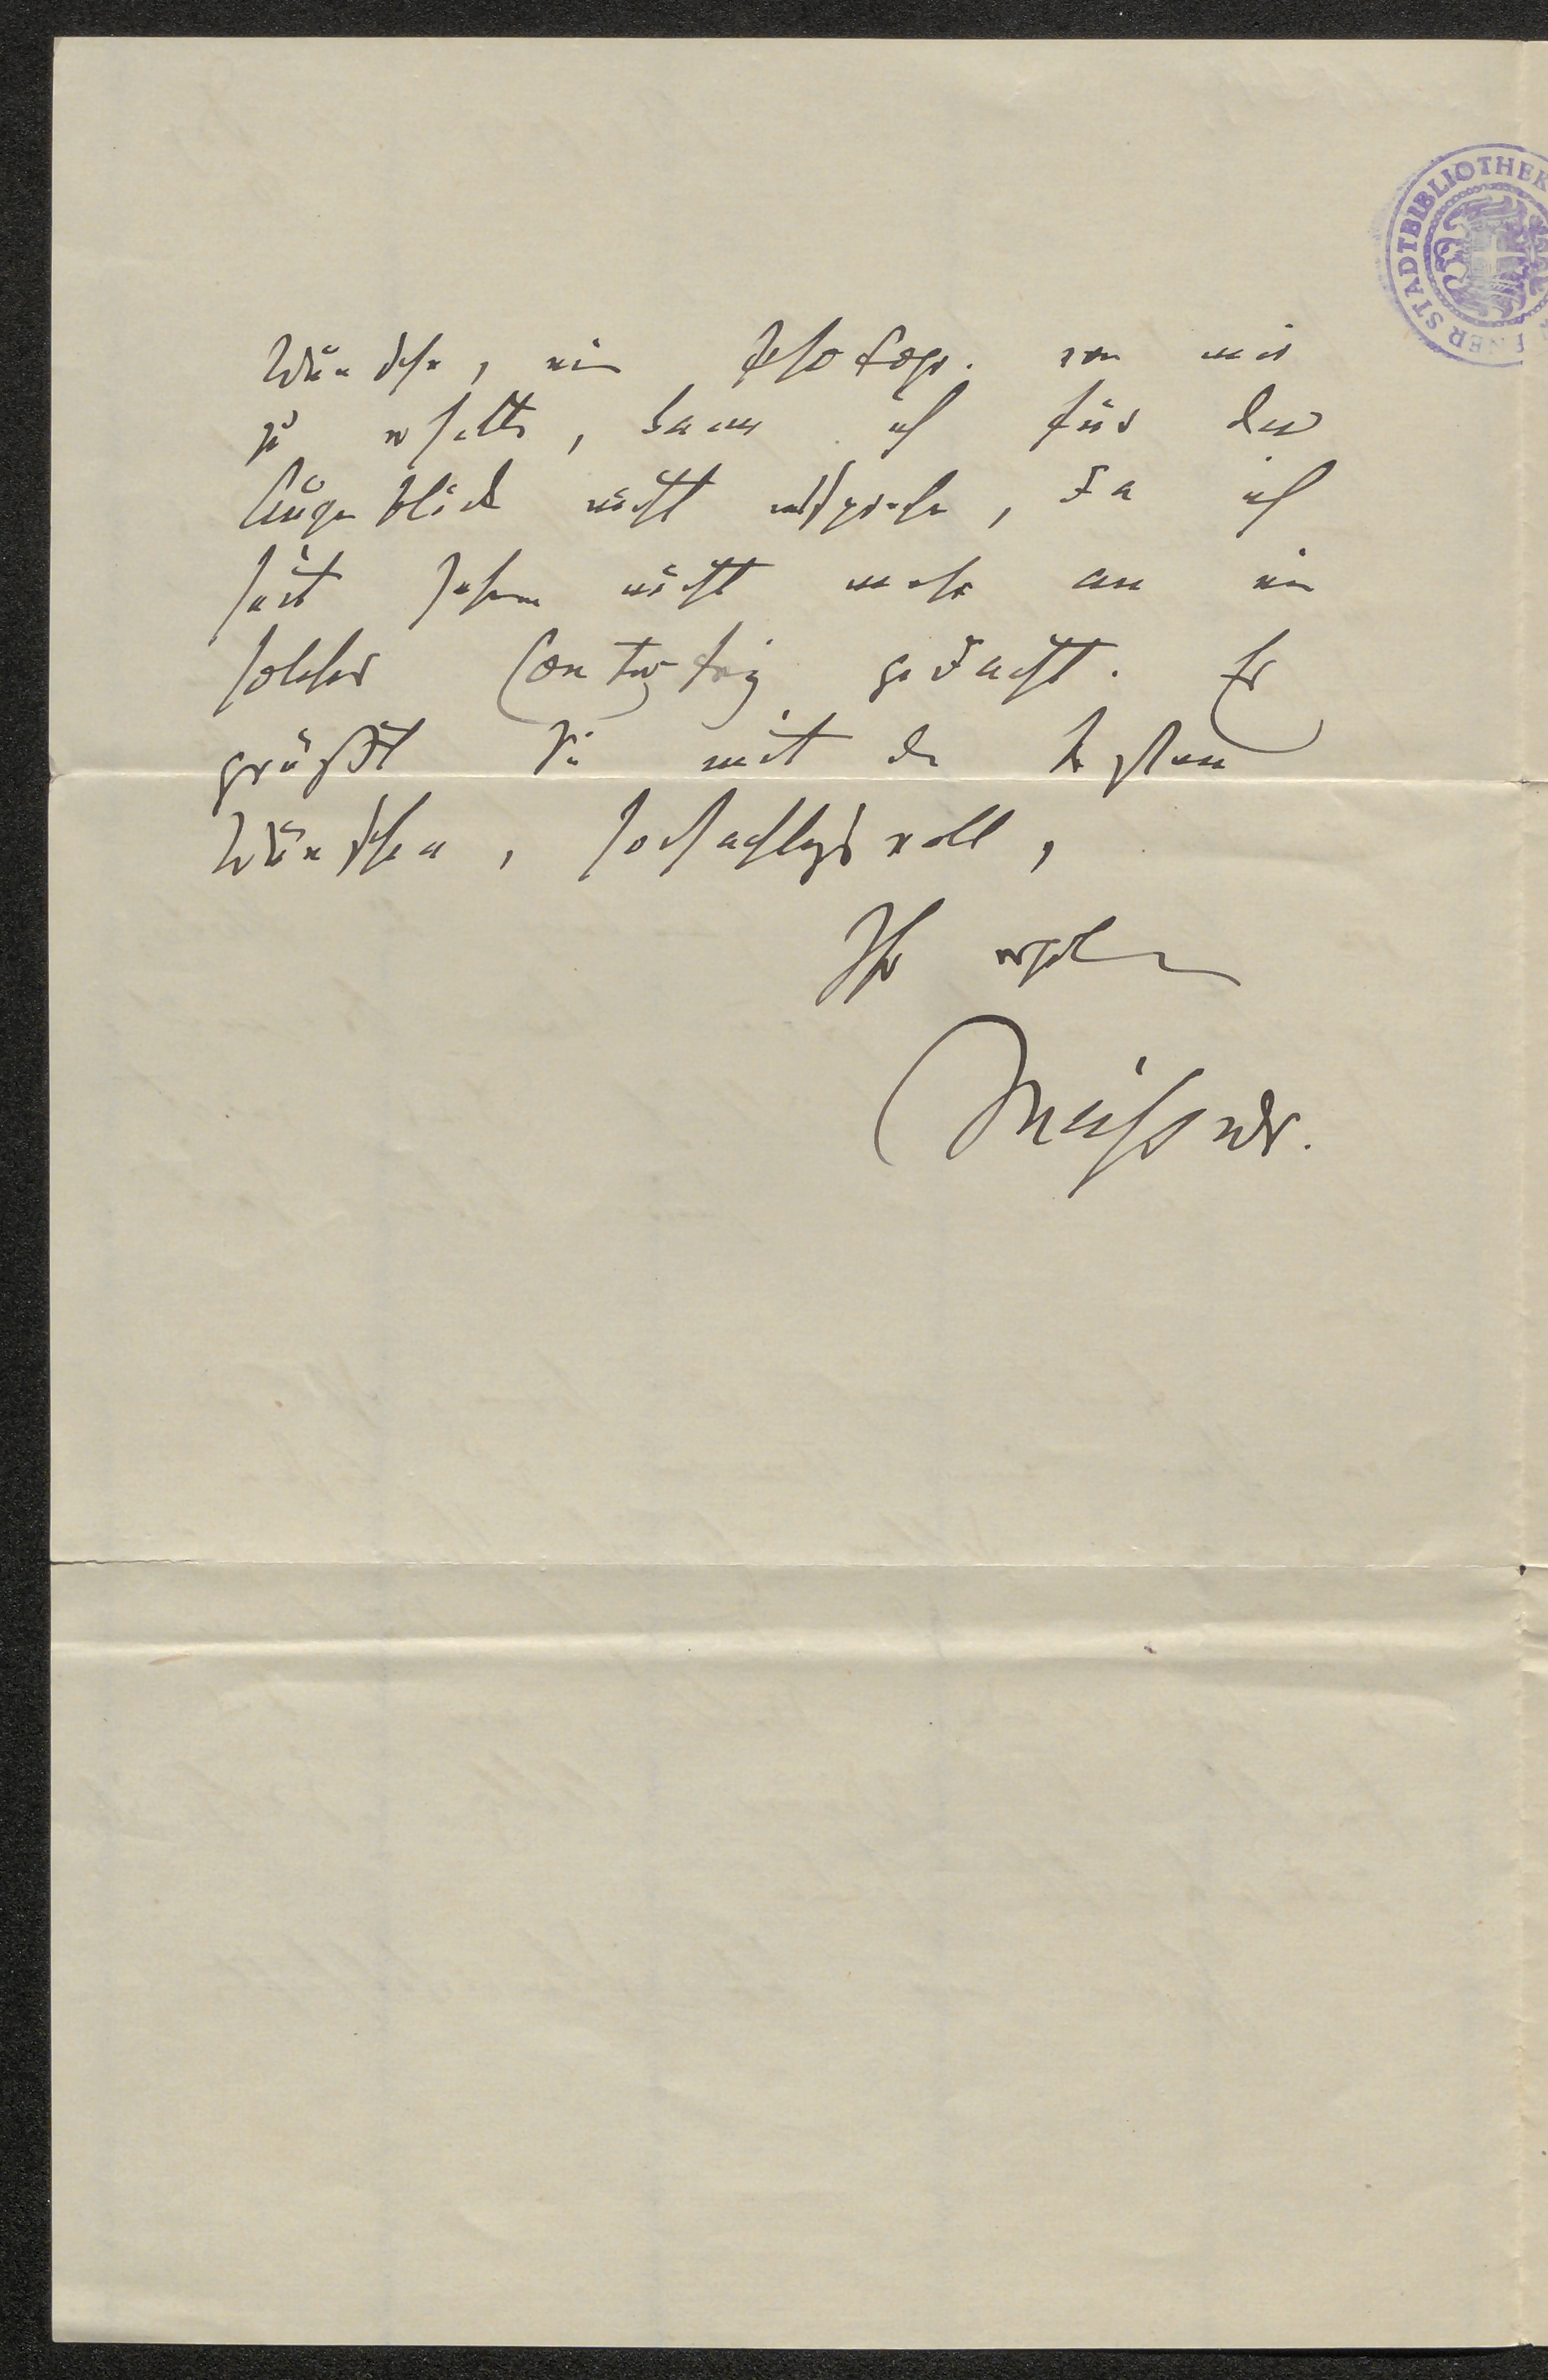 Wunsche, ein Photogr. von mir
zu erhalten, kann ich für den
Augenblick nicht entsprechen, da ich
seit Jahren nicht mehr an ein
solches gedacht. Es
grüßt Sie mit den besten
Wünschen, hochachtungsvoll,
Ihr ergebener
Meissner.
STADTBIBLIOTHEK